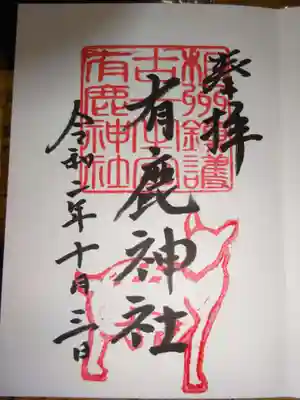 奉拝
相州鎮護
古社
有鹿神社
有鹿神社
令和二年十月三日